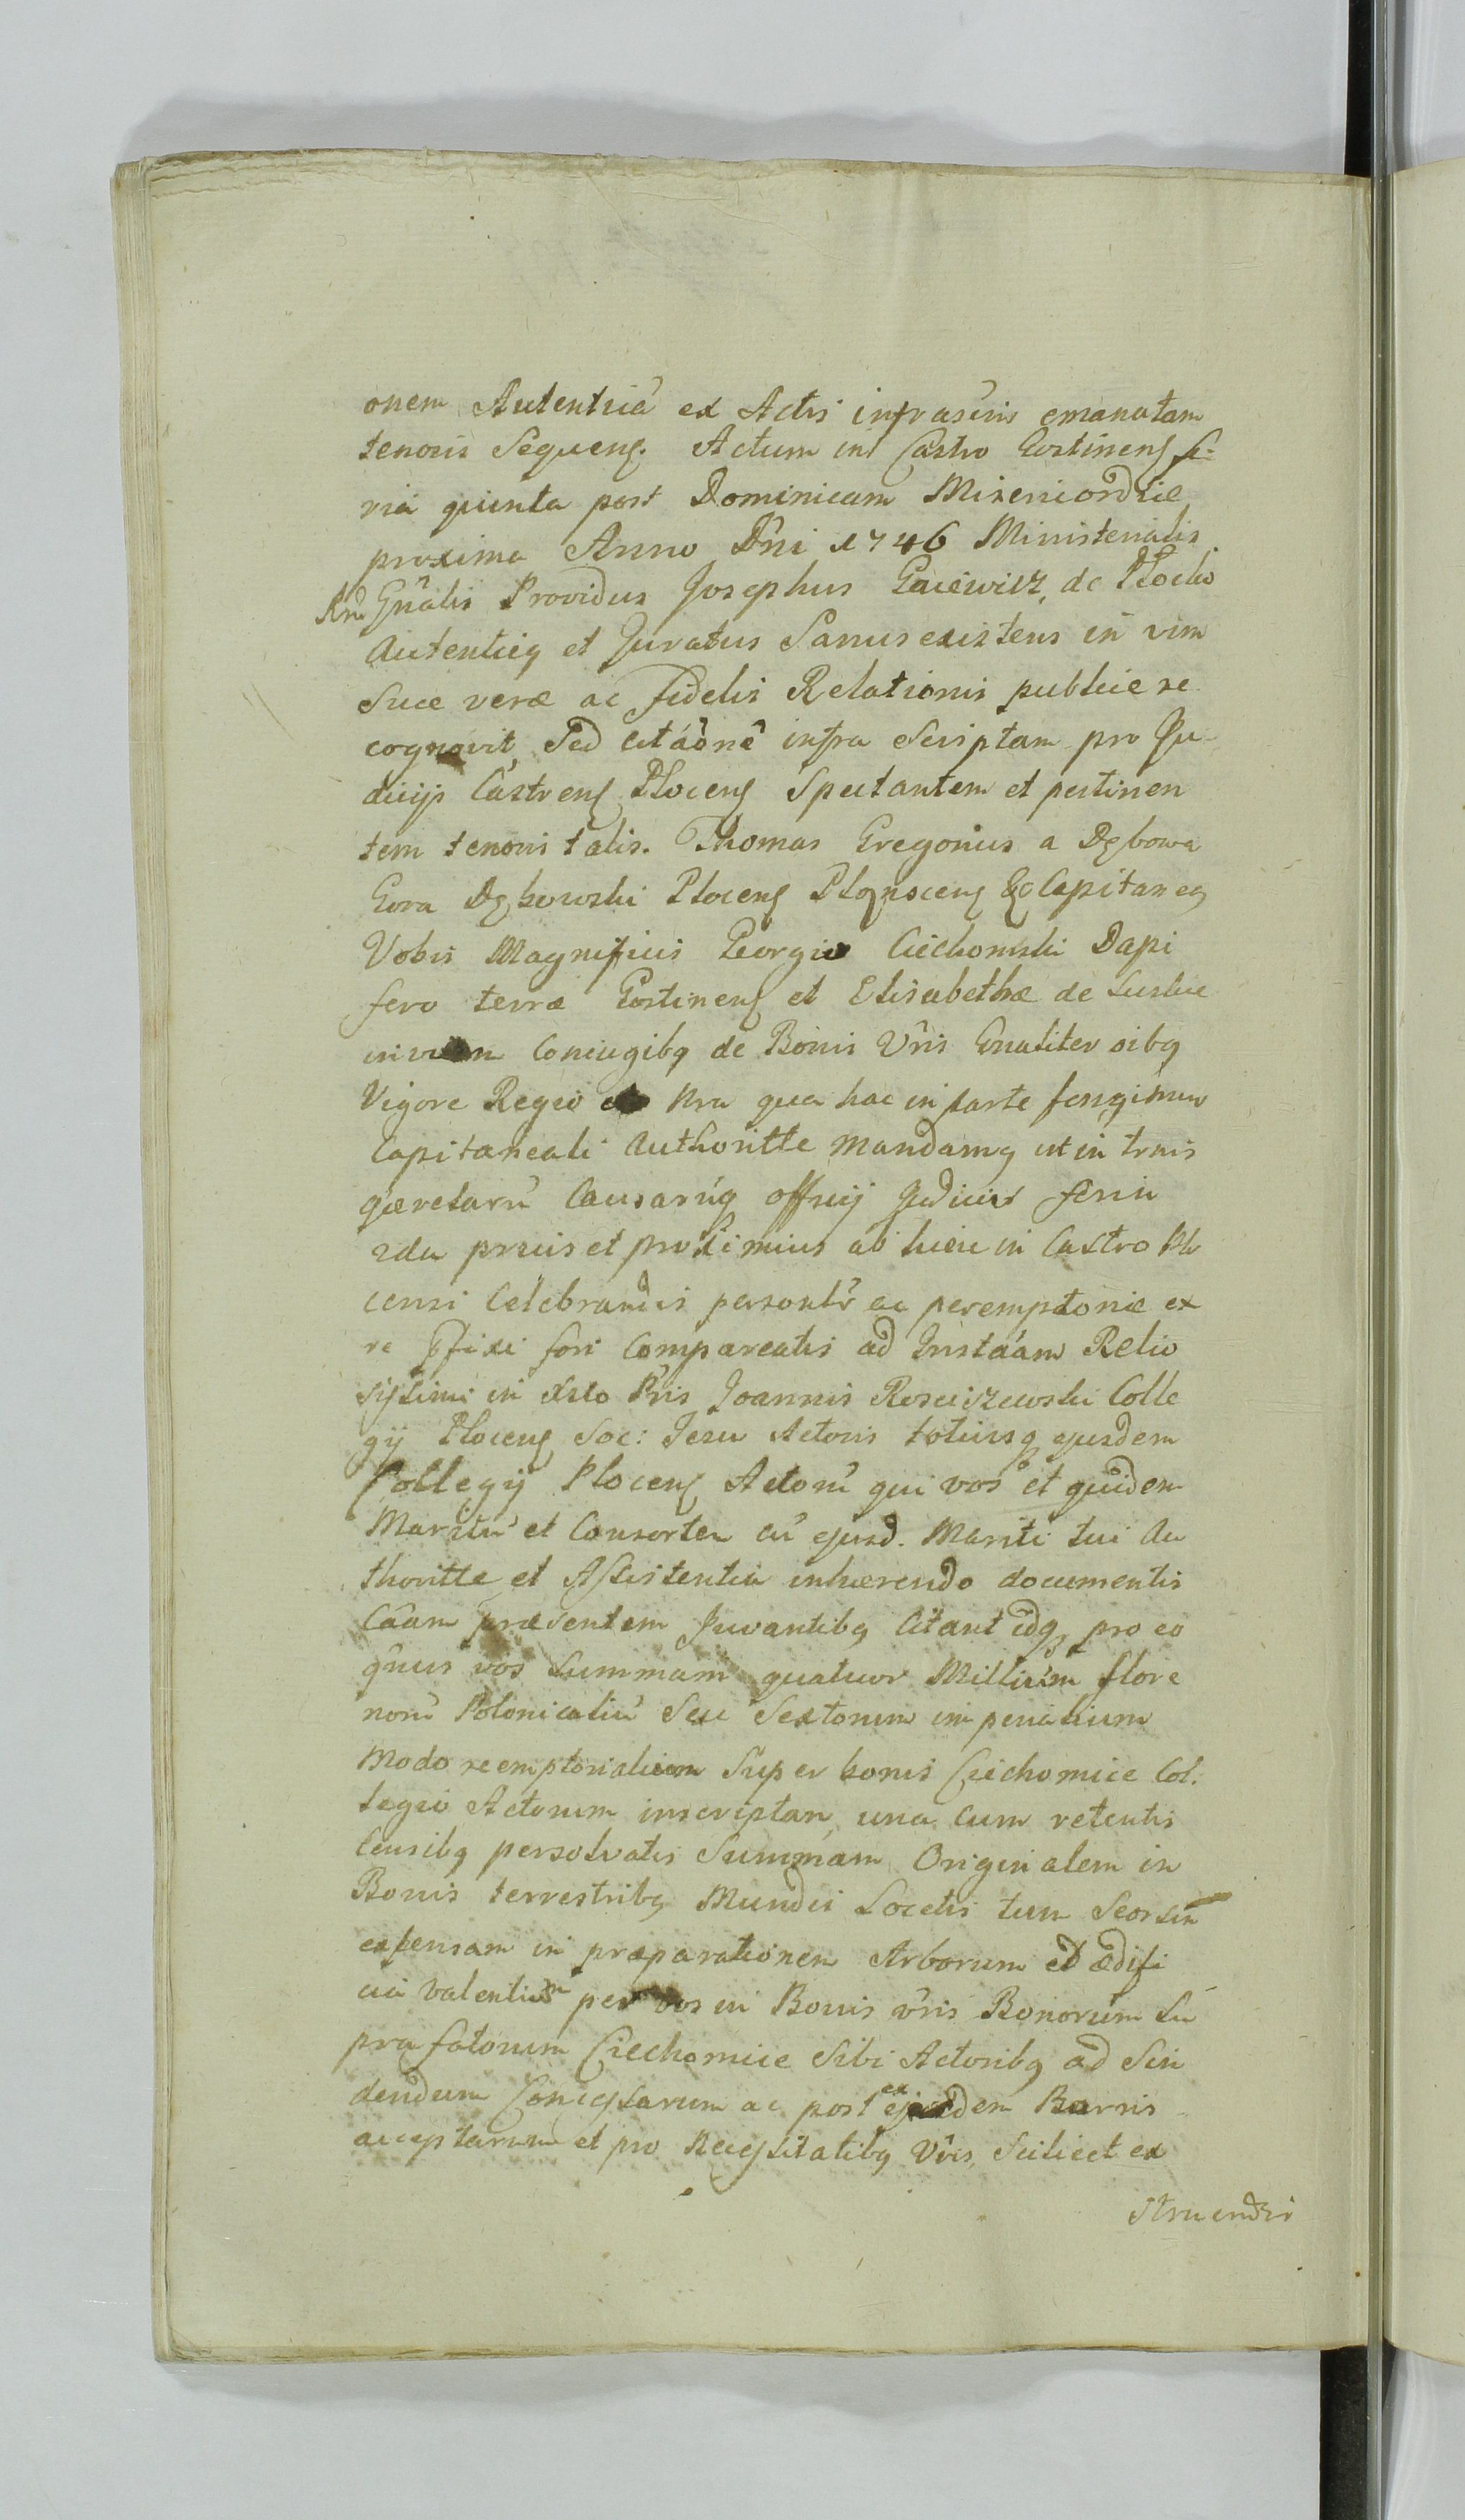 onem Autentică ex Actis infrascris emanatam
tenoris Sequens. Actum in Castro Gostinens fe-
ria quinta post Dominicam Misericordiæ
proxima Anno Dñi 1746 Ministerialis
Rñi Gñalis Providus Josephus Gaiewicz, de Plocko
Autenticq et Juratus Sanus existens in vim
Suæ veræ ac fidelis Relationis publice re
cognovit, Sed citãonẽ infra Scriptam pro Ju
dicijs Castrens Plocens Spectantem et pertinen
tem tenoris talis. Thomas Gregorius a Dębowa
Gora Dębowski Plocens Plonscens &c Capitaneq
Vobis Magnificis Georgio Ciechomski Dapi
fero terræ Gostinens et Elisabethæ de
invicem Coniugibq de Bonis Vris Gnaliter oibq
Vigore Regio et Nra qua hac in parte fungimur
Capitaneali Authoritte mandamq ut in trnis
quæretarũ Causarũq officij Judicijs feria
2da pruis et proximius ab hinc in Castro Plo
censi Celebrandis personlr ac peremptorie ex
re Pfixi fori Compareatis ad Instãam Relio
sissimi in Xsto Pris Joannis Rosciszewski Colle
gij Plocens Soc: Jesu Actoris totiusq ejusdem
Collegij Plocens Actorũ qui vos et quidem
Maritũ et Consortem cũ ejusd. Mariti tui Au
thoritte et Assistentia inhærendo documentis
Cãam præsentem Juvantibq Citant idq pro eo
qnus vos Summam quatuor Millium flore
norũ Polonicaliũ Seu Sextorum imperialium
Modo reemptorialium Super bonis Ciechomice Col:
legio Actorum inscriptam una cum retentis
Censibq persolvatis Summam Originalem in
Bonis terrestribq Mundis Locetis tum Seorsim
expensam in præparationem Arborum ad ædifi
cia valentium per vos in Bonis vris Bonorum Su
pra fatorum Ciechomice Sibi Actoribq ad Scin
dendum Concessarum ac post ex ejusdem Barnis
acceptarum et pro Necessitatibq Vris, Scilicet ex
struendis